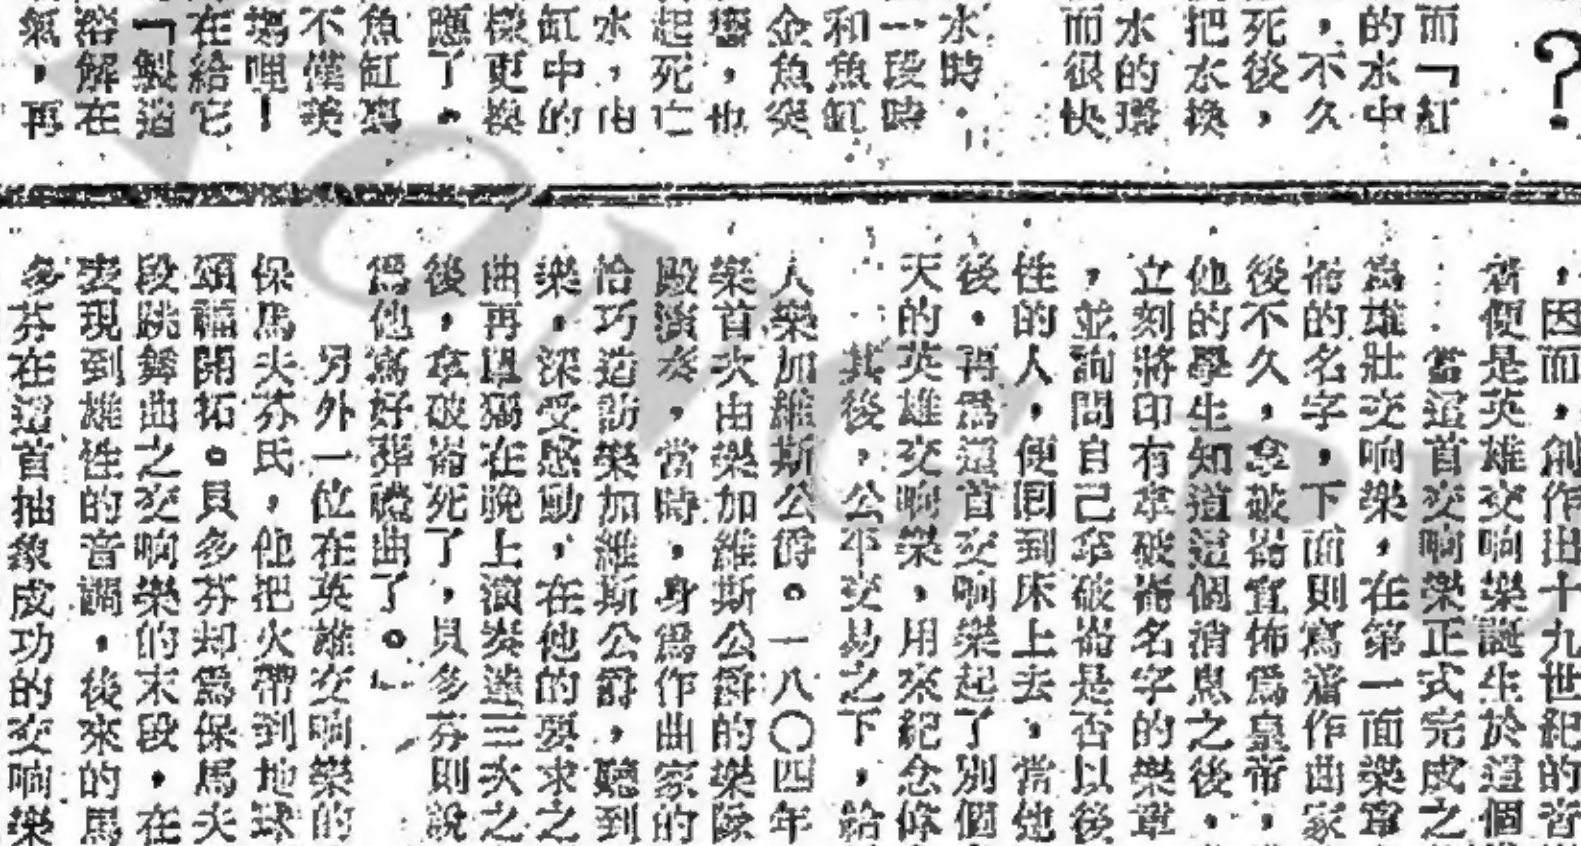 ?
而「紅
的水中
，不久
死後，
把水換
水的
而很快
水時
一段時
和魚缸
金魚突
，也
起死亡
水，由
缸中的
樣更換
應了。
魚缸
不僅美
塲哩！
在給它
「製造
溶解在
氣，再
，因而，創作出十九世紀的音
著便是英雄交响樂誕生於這個
當這首交响樂正式完成之
爲雄壯交响樂，在第一面樂章
崙的名字，下面則寫着作曲家
後不久，拿破崙宣佈爲皇帝，
他的學生知道這個消息之後，
立刻將印有拿破崙名字的樂章
，並詢問自己拿破崙是否以後
性的人，便囘到床上去，當他
後，再爲這首交响樂起了別個
天的英雄交响樂，用來紀念偉
其後，公平交易之下，給
人樂加維斯公爵。一八〇四年
樂首次由樂加維斯公爵的樂隊
殿演奏，當時，身爲作曲家的
恰巧造訪樂加維斯公爵，聽到
樂，深受感動，在他的要求之
曲再單獨在晚上演奏達三次之
後，拿破崙死了，貝多芬則說
爲他寫好葬禮曲了。」
另外一位在英雄交响樂的
保馬夫芬氏，他把火帶到地球
頌讚開拓。貝多芬却爲保馬夫
段跳舞曲之交响樂的末段，在
表現到雄性的音調，後來的馬
多芬在這首抽象成功的交响樂
YONG PU